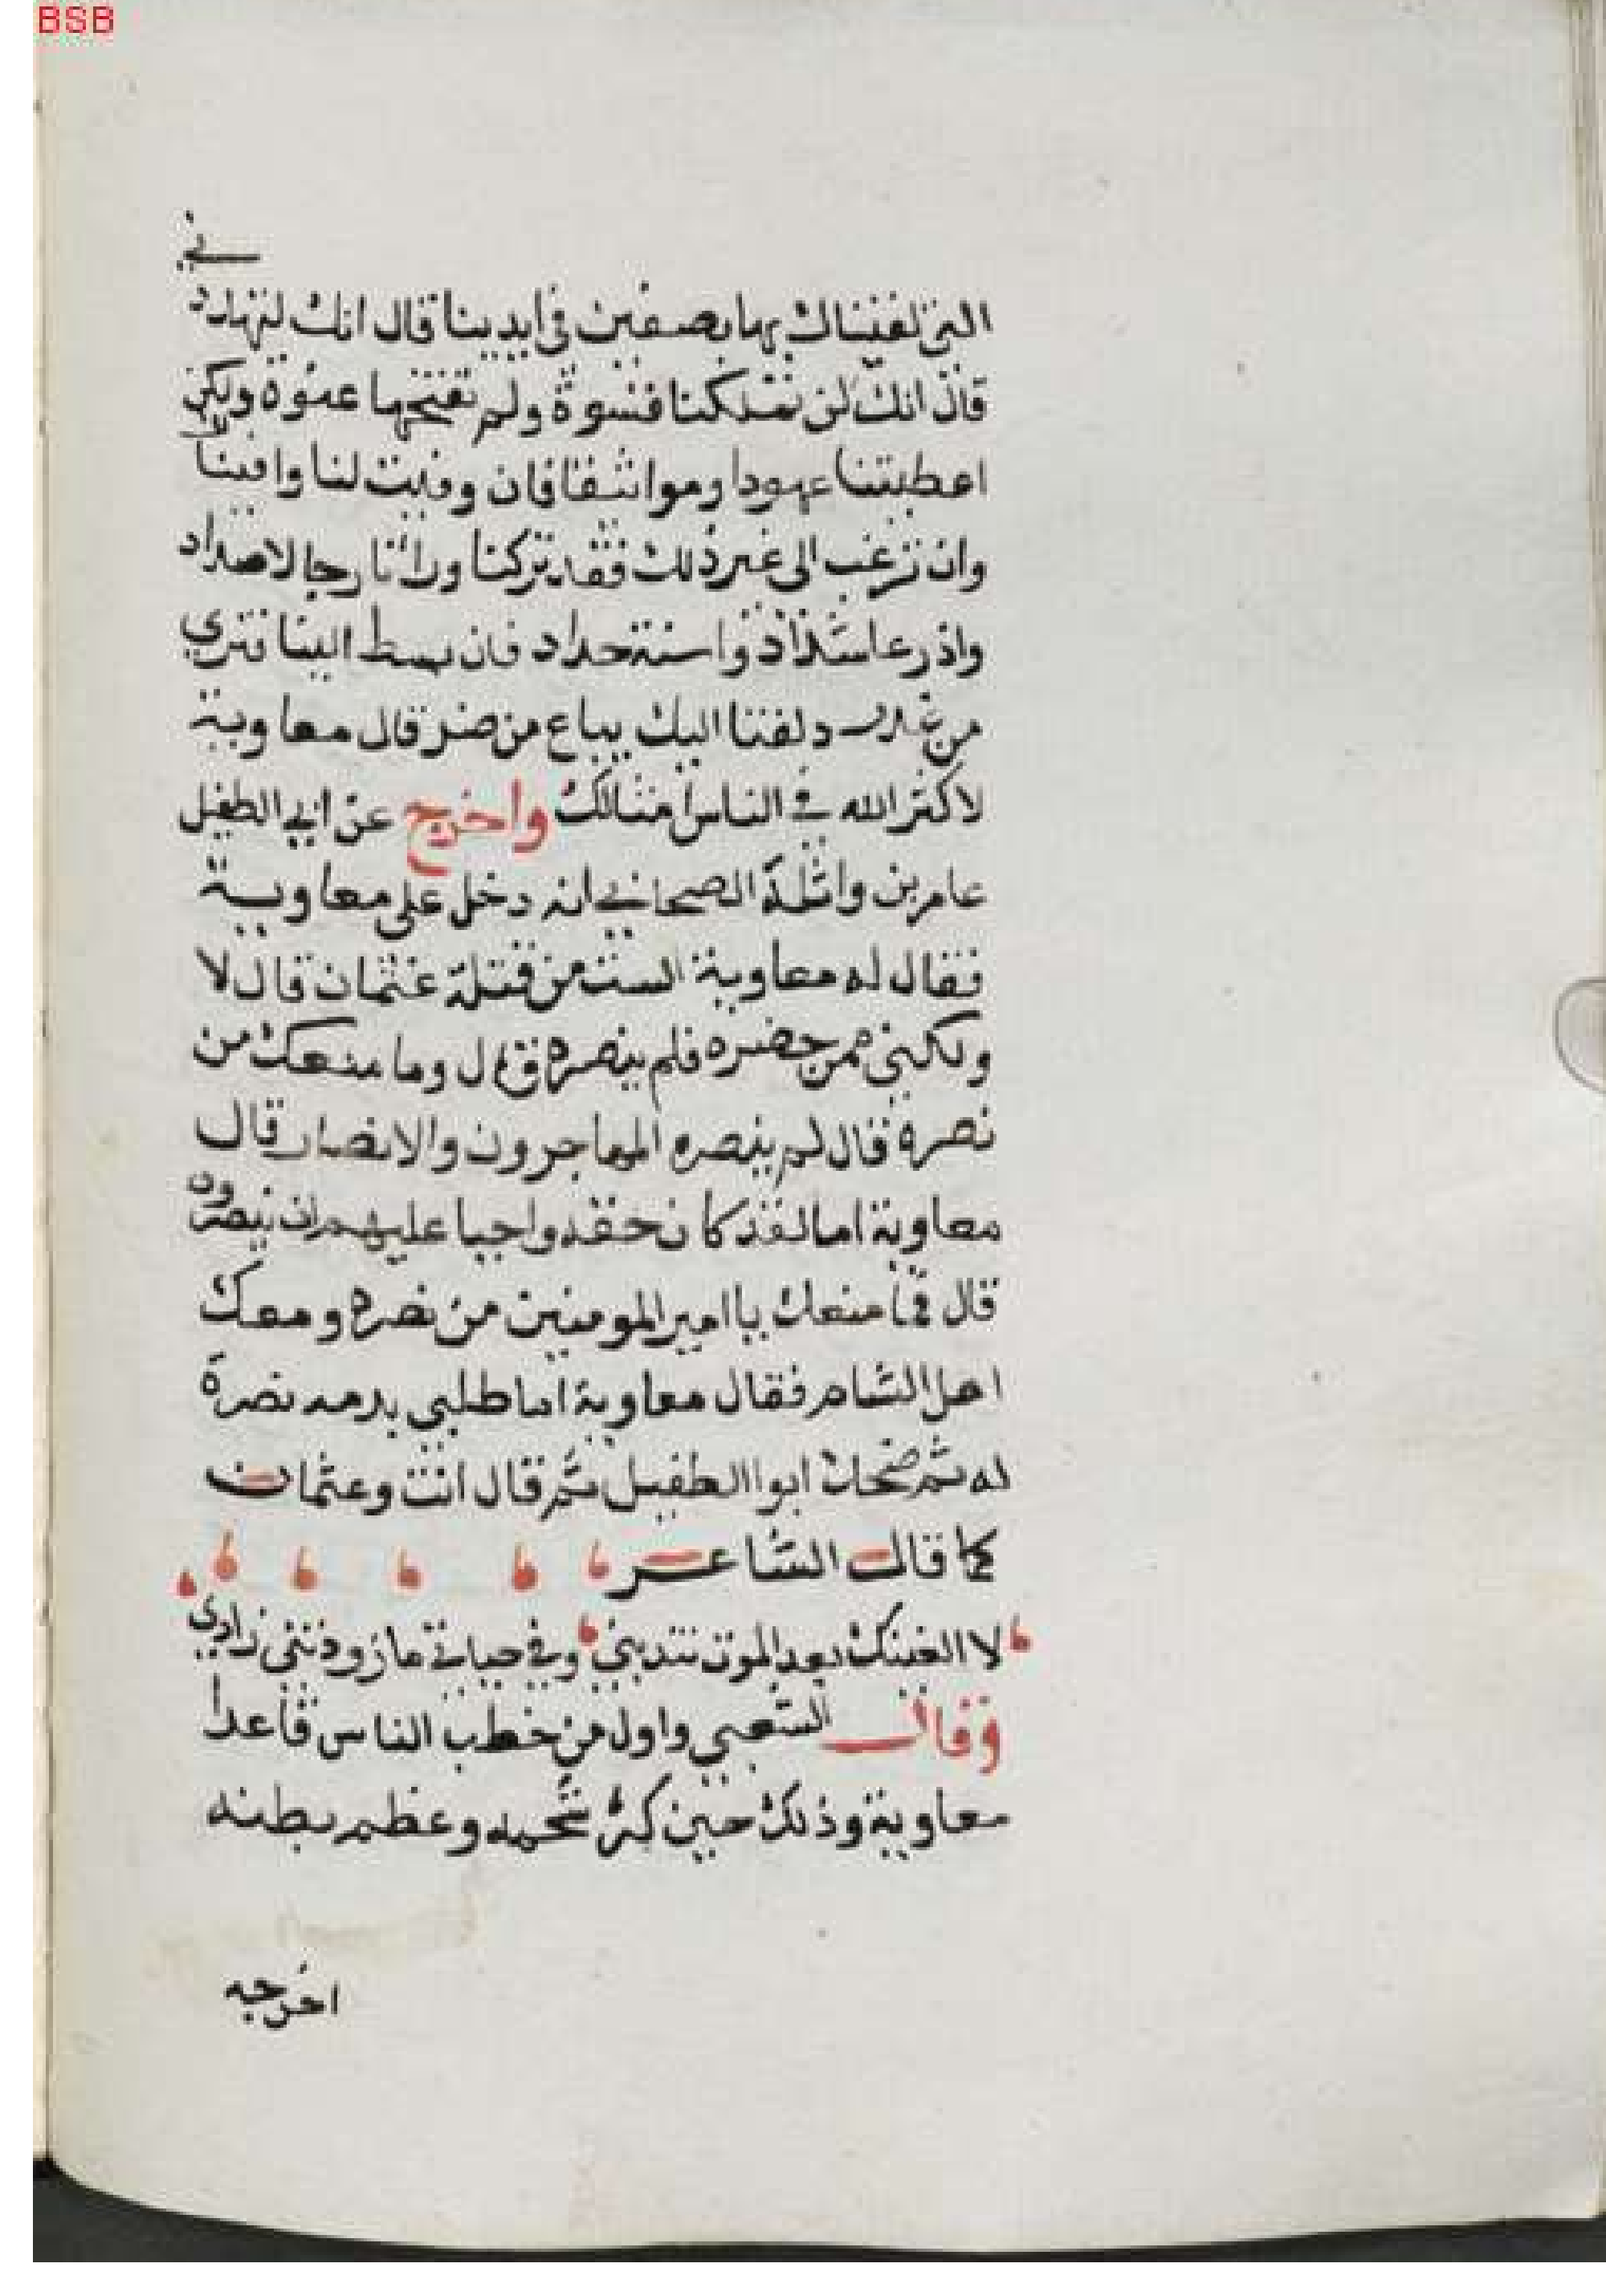 BSB
التي لقيناك بها بصفين في ايدينا قال انك لتهددني
قال انك لن تملكنا قسوة ولم تفتحها عنوة ولكن
اعطيتنا عهودا ومواثقا فان وفيت لنا وافينا
وان ترغب الى غير ذلك فقد تركنا ورائنا رجالا مدادا
واذرعا شدادا واسنة حدادا فان بسط الينا فتري
من غدر دلفنا اليك بباع من ضر قال معاوية
لا كثر الله في الناس امثالك واخرج عن ابي الطفيل
عامر بن واثلة الصحابي انه دخل على معاوية
فقال له معاوية الست من قتلة عثمان قال لا
ولكني ممن حضره فلم ينصره قال وما منعك من
نصره قال لم ينصره المهاجرون والانصار قال
معاوية اما لقد كان حقه واجبا عليهم ان ينصرون
قال فما منعك يا امير المومنين من نصره ومعك
اهل الشام فقال معاوية اما طلبي بدمه نصرة
له ثم ضحك ابوا الطفيل ثم قال انت وعثمان
كما قال الشاعر
لا الفينك بعد الموت تندبني وفي حياتي ما زودتني زادي
وقال الشعبي واول من خطب الناس قاعدا
معاوية وذلك حين كثر شحمه وعظم بطنه
اخرجه